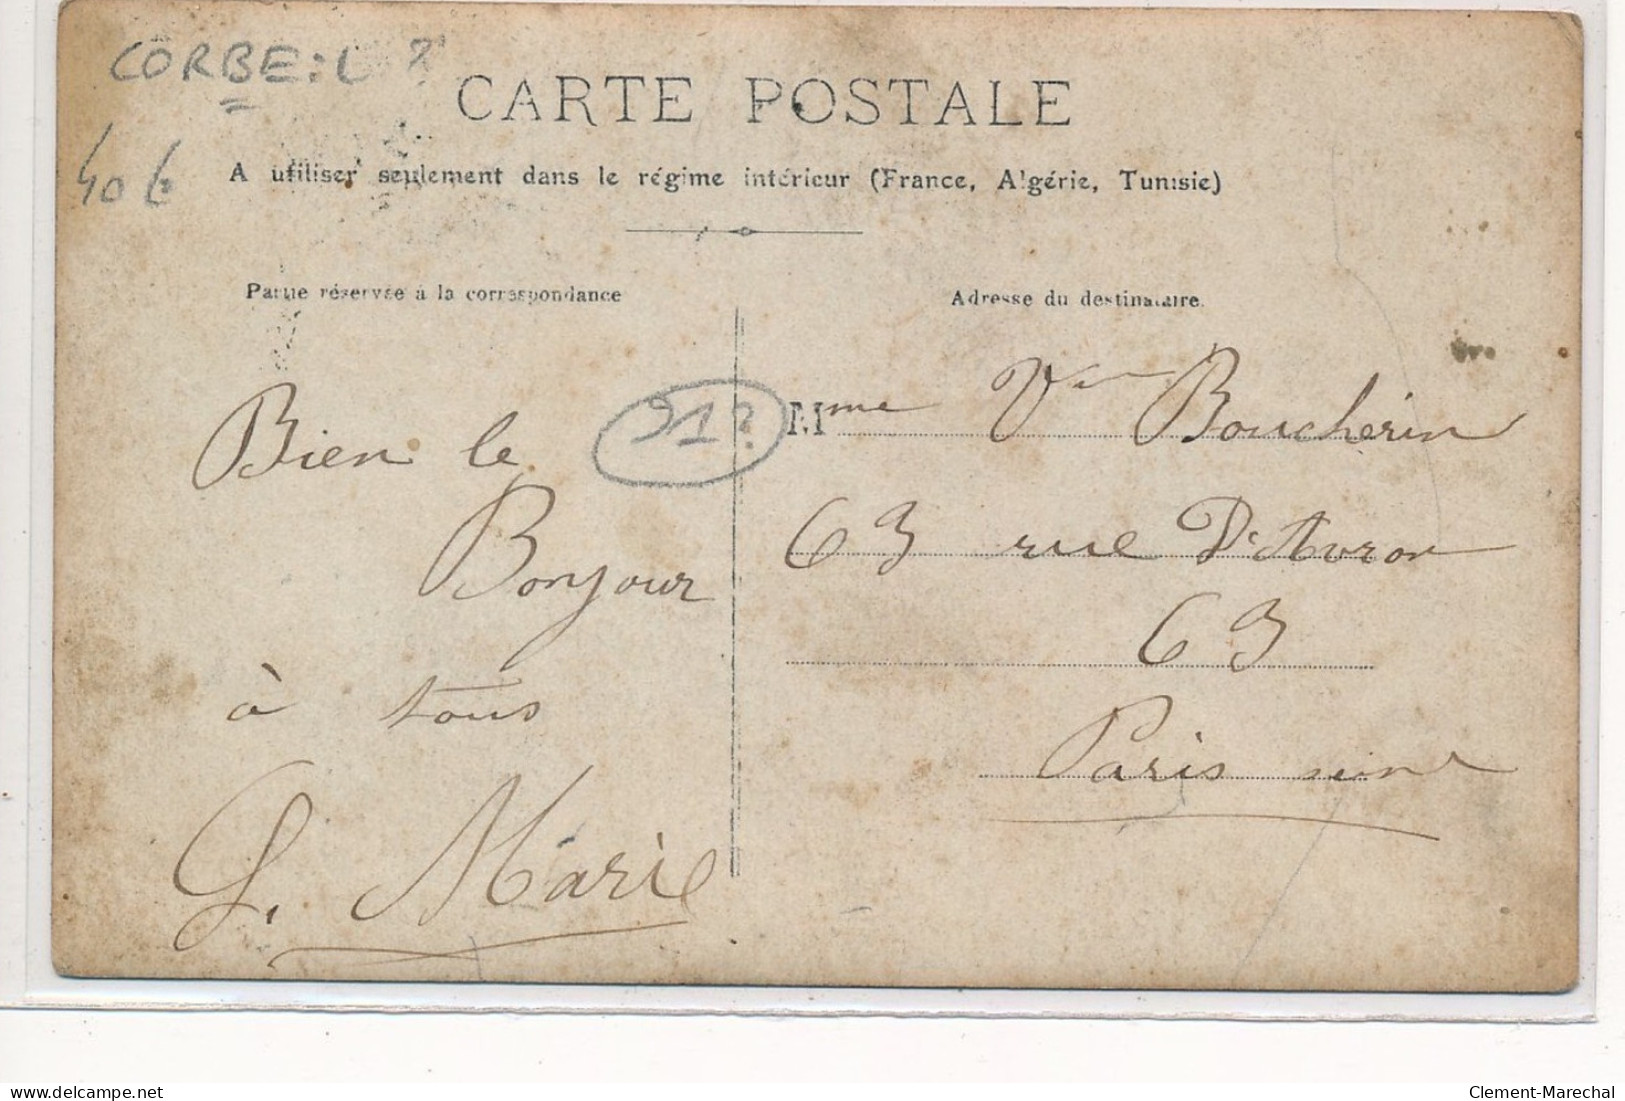 CORBEIL ?
CARTE POSTALE
40 €
A utiliser seulement dans le régime intérieur (France, Algérie, Tunisie)
Partie réservée à la correspondance
Adresse du destinataire.
91?
Mme Vve Boucherin
Bien le
63 rue D'Avron
Bonjour
63
à tous
Paris seine
G. Marie
delcampe.net
Clement-Marechal